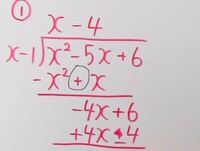 ①
x - 4
x-1)x² - 5x + 6
-x² + x
-4x + 6
+4x - 4